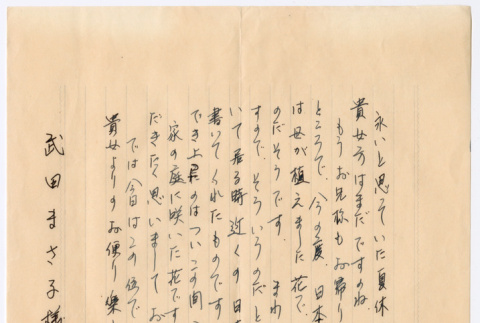 永いと思っていた夏休
貴女方はまだですのね
もうお兄様もお帰り
ところで、今の度、日本
は母が植えました花で、
のだそうです。まわ
すので、そういうのだと
いて居る時近くの日
書いてくれたものです
でき上ったのはついこの間
家の庭に咲いた花です
だきたく思いまして お
では今日はこの位で
貴女よりのお便り 楽
武田まさ子様